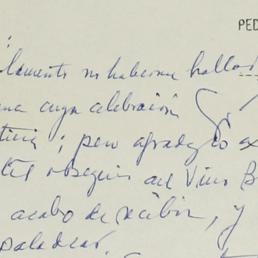 PED
lamento no habernos hallado
una cuya celebración
ticia; pero agradezco
obsequio del Vino B
acabo de recibir, y
paladear.